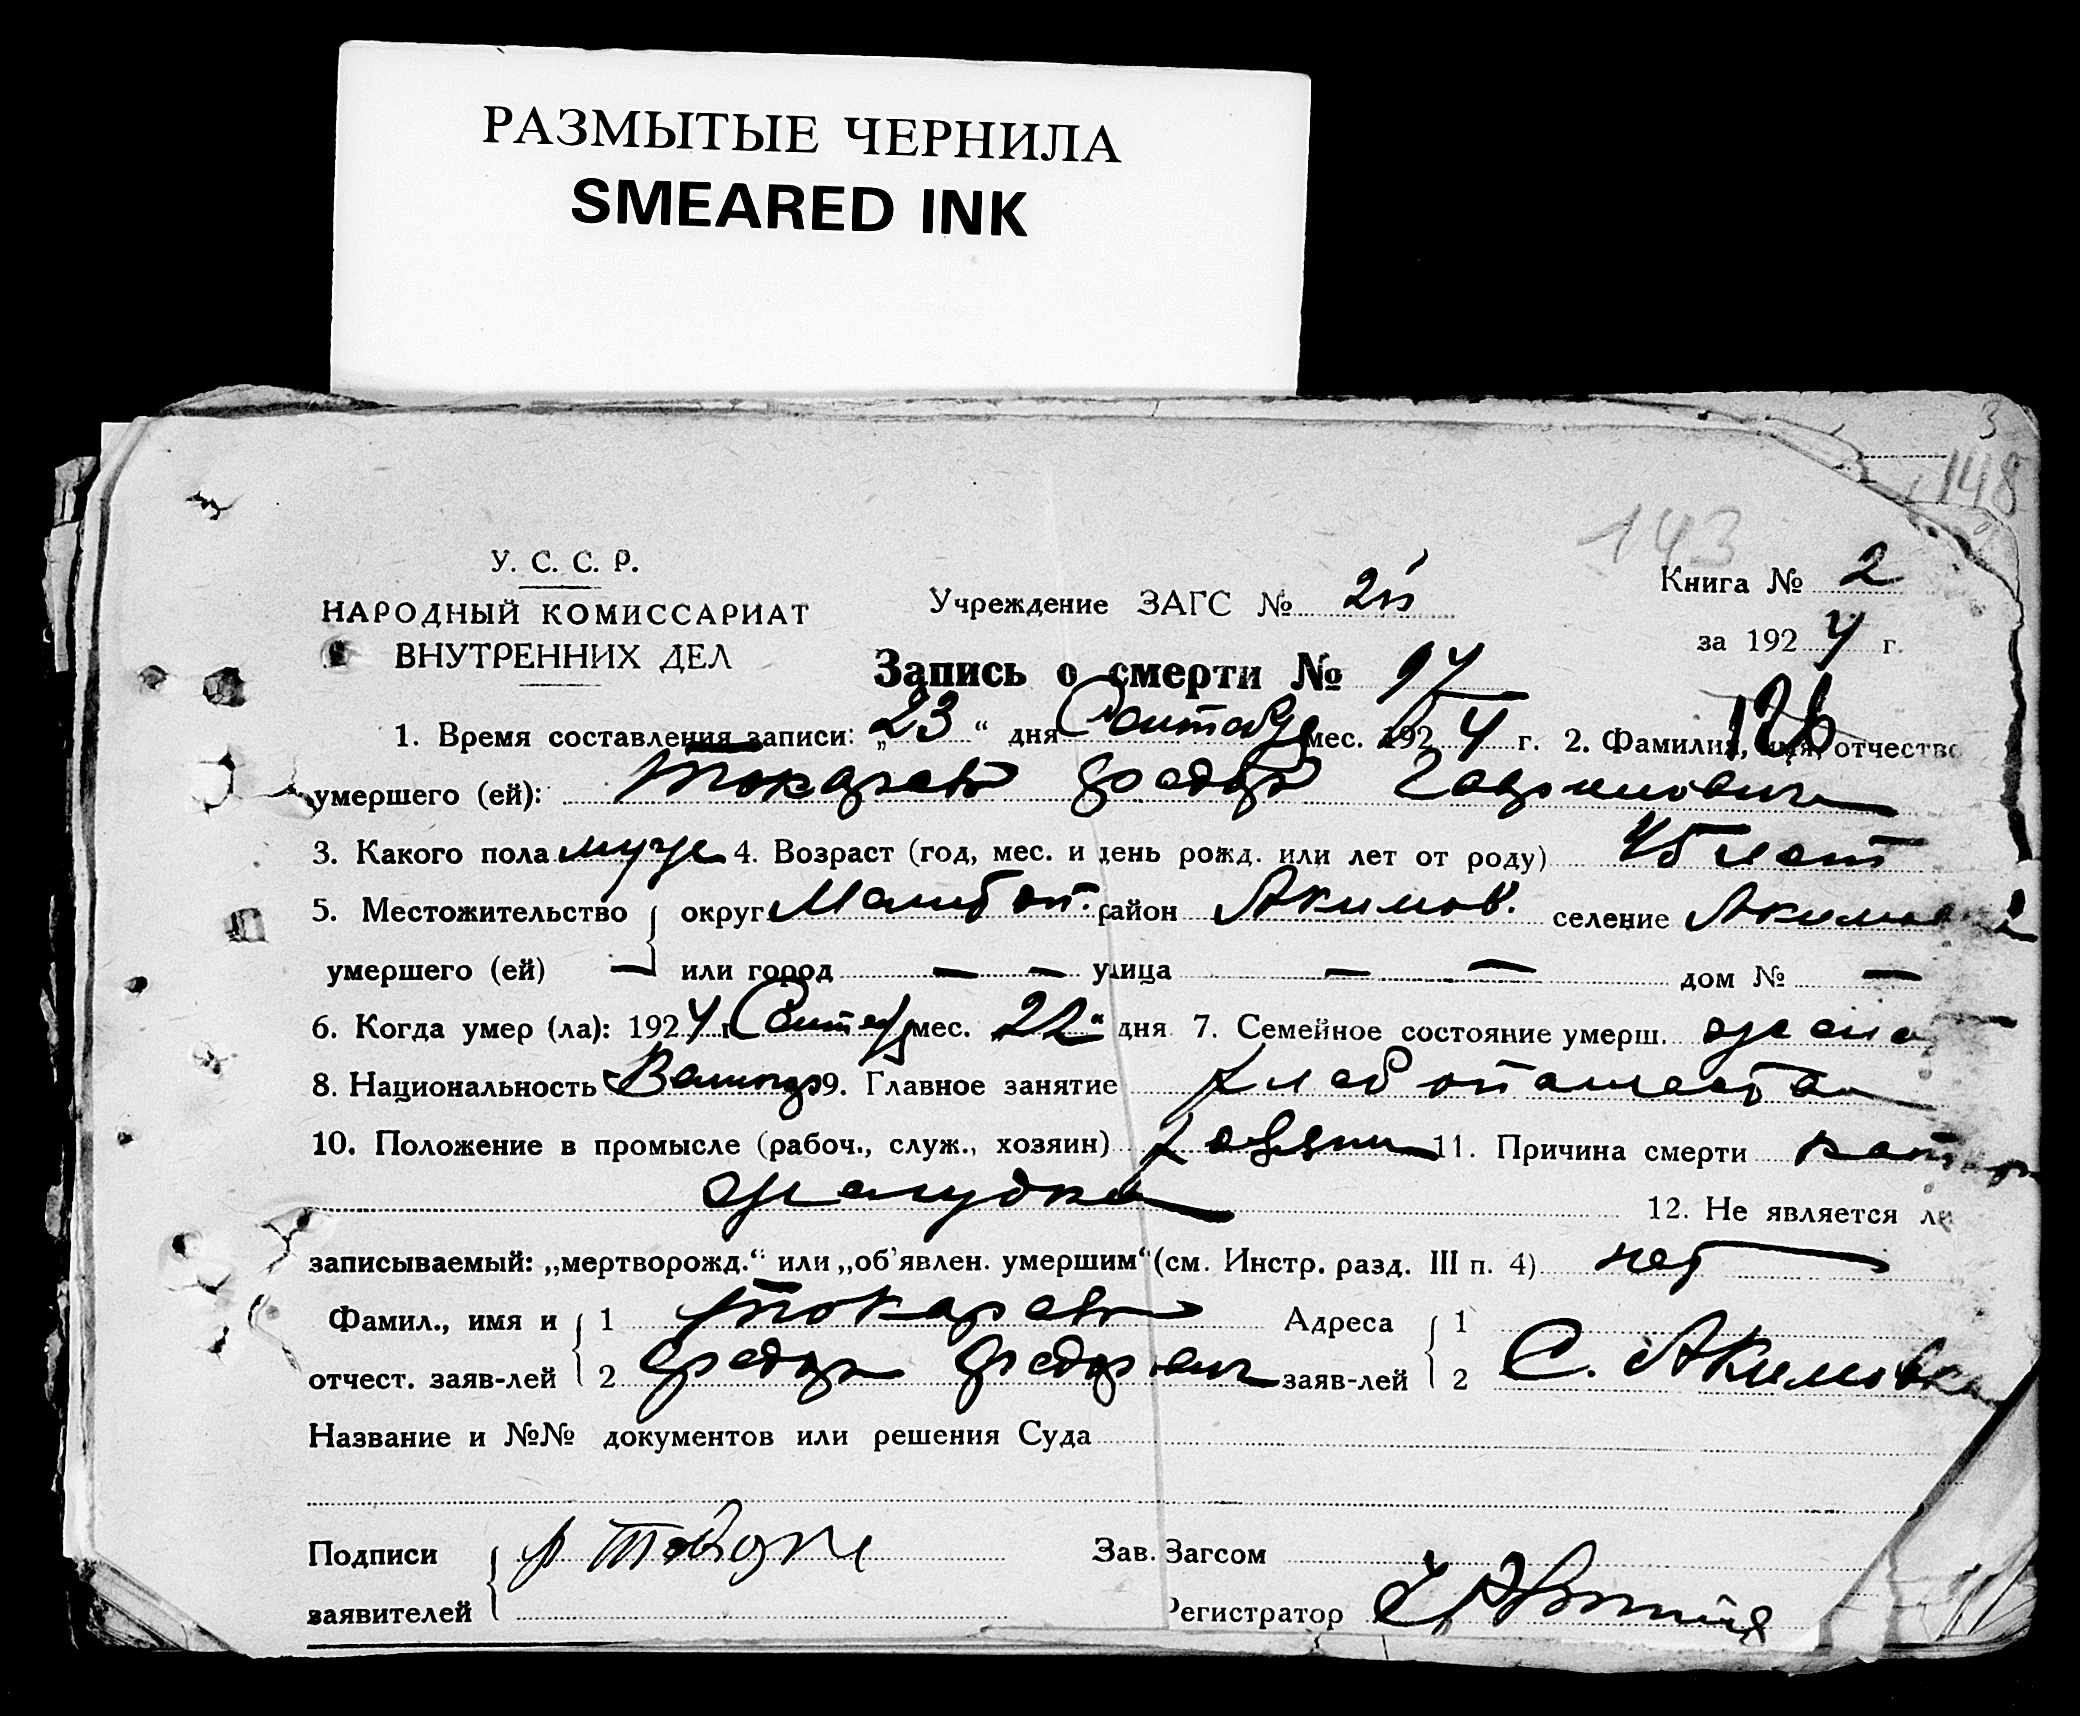 РАЗМЫТЫЕ ЧЕРНИЛА
SMEARED INK
3
148
143
У. С. С. Р.
НАРОДНЫЙ КОМИССАРИАТ
ВНУТРЕННИХ ДЕЛ
Учреждение ЗАГС №
Книга № 2
за 1924 г.
Запись о смерти № 94
126
1. Время составления записи: „23“ дня Сентабр мес. 1924 г. 2. Фамилия, имя, отчество
умершего (ей): Токарев Федор Гаврилович
3. Какого пола муж 4. Возраст (год, мес. и день рожд. или лет от роду) 45 лет
5. Местожительство округ Мелитоп. район Акимов. селение Акимовка
умершего (ей) — или город — — улица — — дом № —
6. Когда умер (ла): 1924 г. Сентябр мес. 22“ дня 7. Семейное состояние умерш. женат
8. Национальность Великор 9. Главное занятие хлебопашество
10. Положение в промысле (рабоч., служ., хозяин) хозяин 11. Причина смерти катар
желудка 12. Не является ли
записываемый: „мертворожд.“ или „об'явлен. умершим“ (см. Инстр. разд. III п. 4) нет
Фамил., имя и 1 Токарев Адреса 1
отчест. заяв-лей 2 Федор Федорович заяв-лей 2 С. Акимовка
Название и №№ документов или решения Суда
Подписи Зав. Загсом
заявителей Регистратор